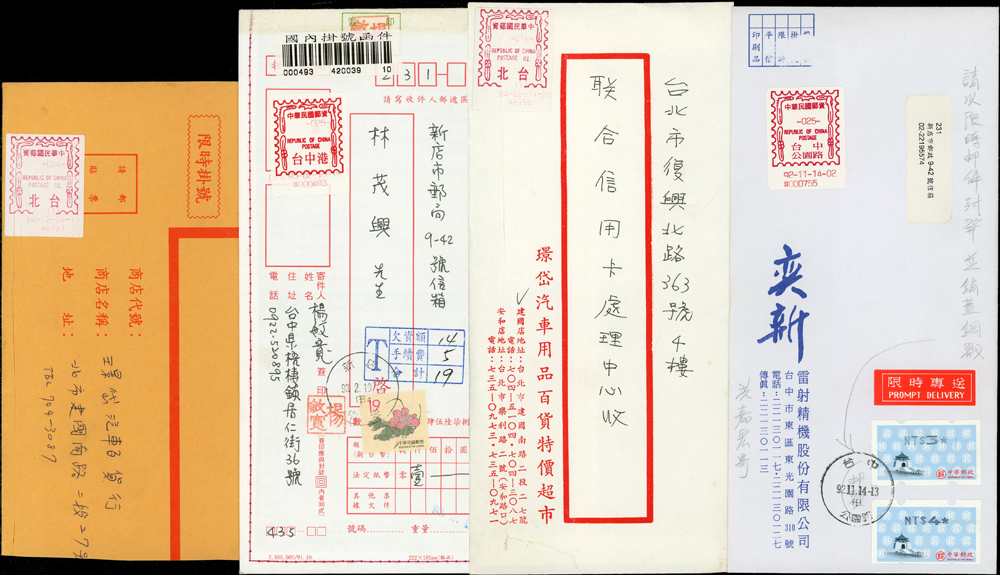 中華民國郵資
REPUBLIC OF CHINA
POSTAGE
台北
請
郵
貼
票
限時掛號
商店代號:
商店名稱:
環岱汽車百貨行
地 址:
北市建國南路二段27号
TEL 704-3087
國內掛號函件
000493 420039 10
231
請寫收件人郵遞區
中華民國郵資
-025-
REPUBLIC OF CHINA
POSTAGE
台中港
#000493
新店市郵局
9-42
號信箱
林茂興 先生
啓
寄件人
姓名
住址
台中県梧棲鎮居仁街36號
電話
0922-520895
簽
印
T
欠資額 14
手續費 5
合計 19
19
法定紙幣
零
壹
其他票
據文件
號碼
重量
435
2,500,000/91.10.
中華民國郵資
REPUBLIC OF CHINA
POSTAGE
台北
台北市復興北路363號4樓
聯合信用卡處理中心收
環岱汽車用品百貨特價超市
建國店地址:台北市建國南路二段二七號
電話:七〇四-五一〇四・七〇四-三〇八七
安和店地址:台北市樂利路二號(安和路口)
電話:七三五-〇九七三・七三五-〇九七一
印刷品
平信
限時
掛
中華民國郵資
-025-
REPUBLIC OF CHINA
POSTAGE
台中
公園路
02-11-14-02
#000755
231
新店市郵政 9-42 號信箱
02-22195574
奕新
雷射精機股份有限公司
台中市東區東光園路310號
電話:二二一三〇一七・二二一三〇二七
傳眞:二二一三〇一三
限時專送
PROMPT DELIVERY
NT$3*
中華郵政
REPUBLIC OF CHINA
NT$4*
中華郵政
REPUBLIC OF CHINA
台中
92.11.14-13